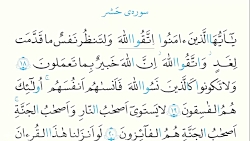 سوره‌ی حَشر
يَٰٓأَيُّهَا ٱلَّذِينَ ءَامَنُوا۟ ٱتَّقُوا۟ ٱللَّهَ وَلۡتَنظُرۡ نَفۡسٞ مَّا قَدَّمَتۡ
لِغَدٖۖ وَٱتَّقُوا۟ ٱللَّهَۚ إِنَّ ٱللَّهَ خَبِيرُۢ بِمَا تَعۡمَلُونَ ١٨
وَلَا تَكُونُوا۟ كَٱلَّذِينَ نَسُوا۟ ٱللَّهَ فَأَنسَىٰهُمۡ أَنفُسَهُمۡۚ أُو۟لَٰٓئِكَ
هُمُ ٱلۡفَٰسِقُونَ ١٩ لَا يَسۡتَوِيٓ أَصۡحَٰبُ ٱلنَّارِ وَأَصۡحَٰبُ ٱلۡجَنَّةِۚ
أَصۡحَٰبُ ٱلۡجَنَّةِ هُمُ ٱلۡفَآئِزُونَ ٢٠ لَوۡ أَنزَلۡنَا هَٰذَا ٱلۡقُرۡءَانَ